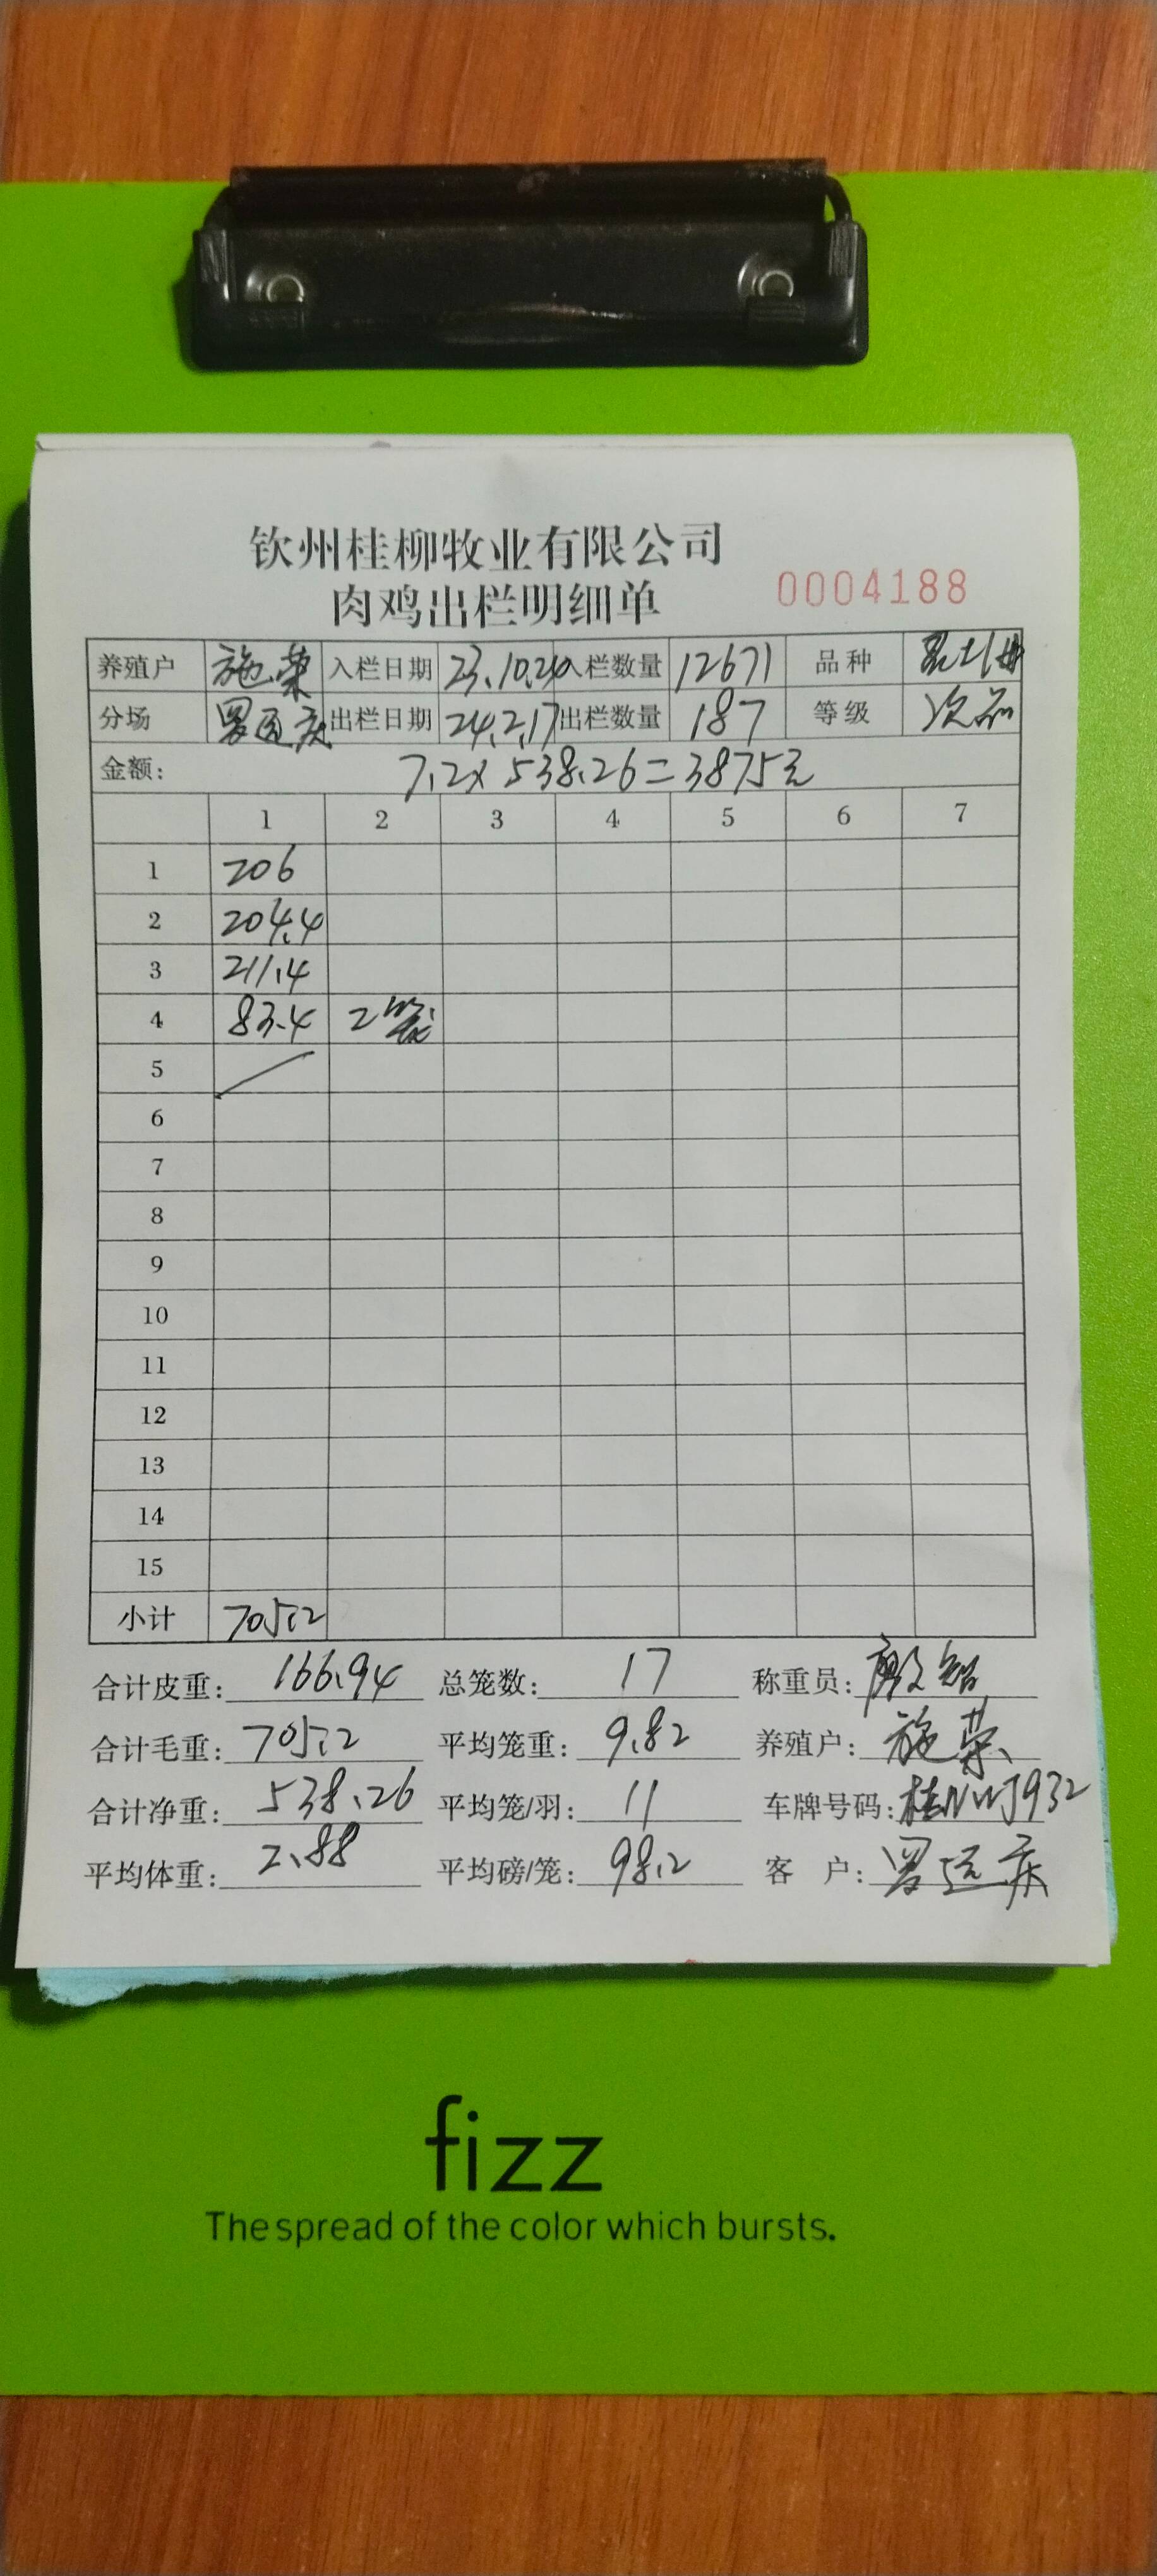 钦州桂柳牧业有限公司
肉鸡出栏明细单
0004188
养殖户 施荣 入栏日期 23.10.20 入栏数量 12671 品种
分场 出栏日期 24.2.17 出栏数量 187 等级 次品
金额: 7.2x538.26=3875元
1 2 3 4 5 6 7
1 206
2 204.4
3 211.4
4 83.4 2笼
5
6
7
8
9
10
11
12
13
14
15
小计 705.2
合计皮重: 166.94 总笼数: 17 称重员:
合计毛重: 705.2 平均笼重: 9.82 养殖户: 施荣
合计净重: 538.26 平均笼/羽: 11 车牌号码:
平均体重: 2.88 平均磅/笼: 98.2 客 户:
fizz
The spread of the color which bursts.